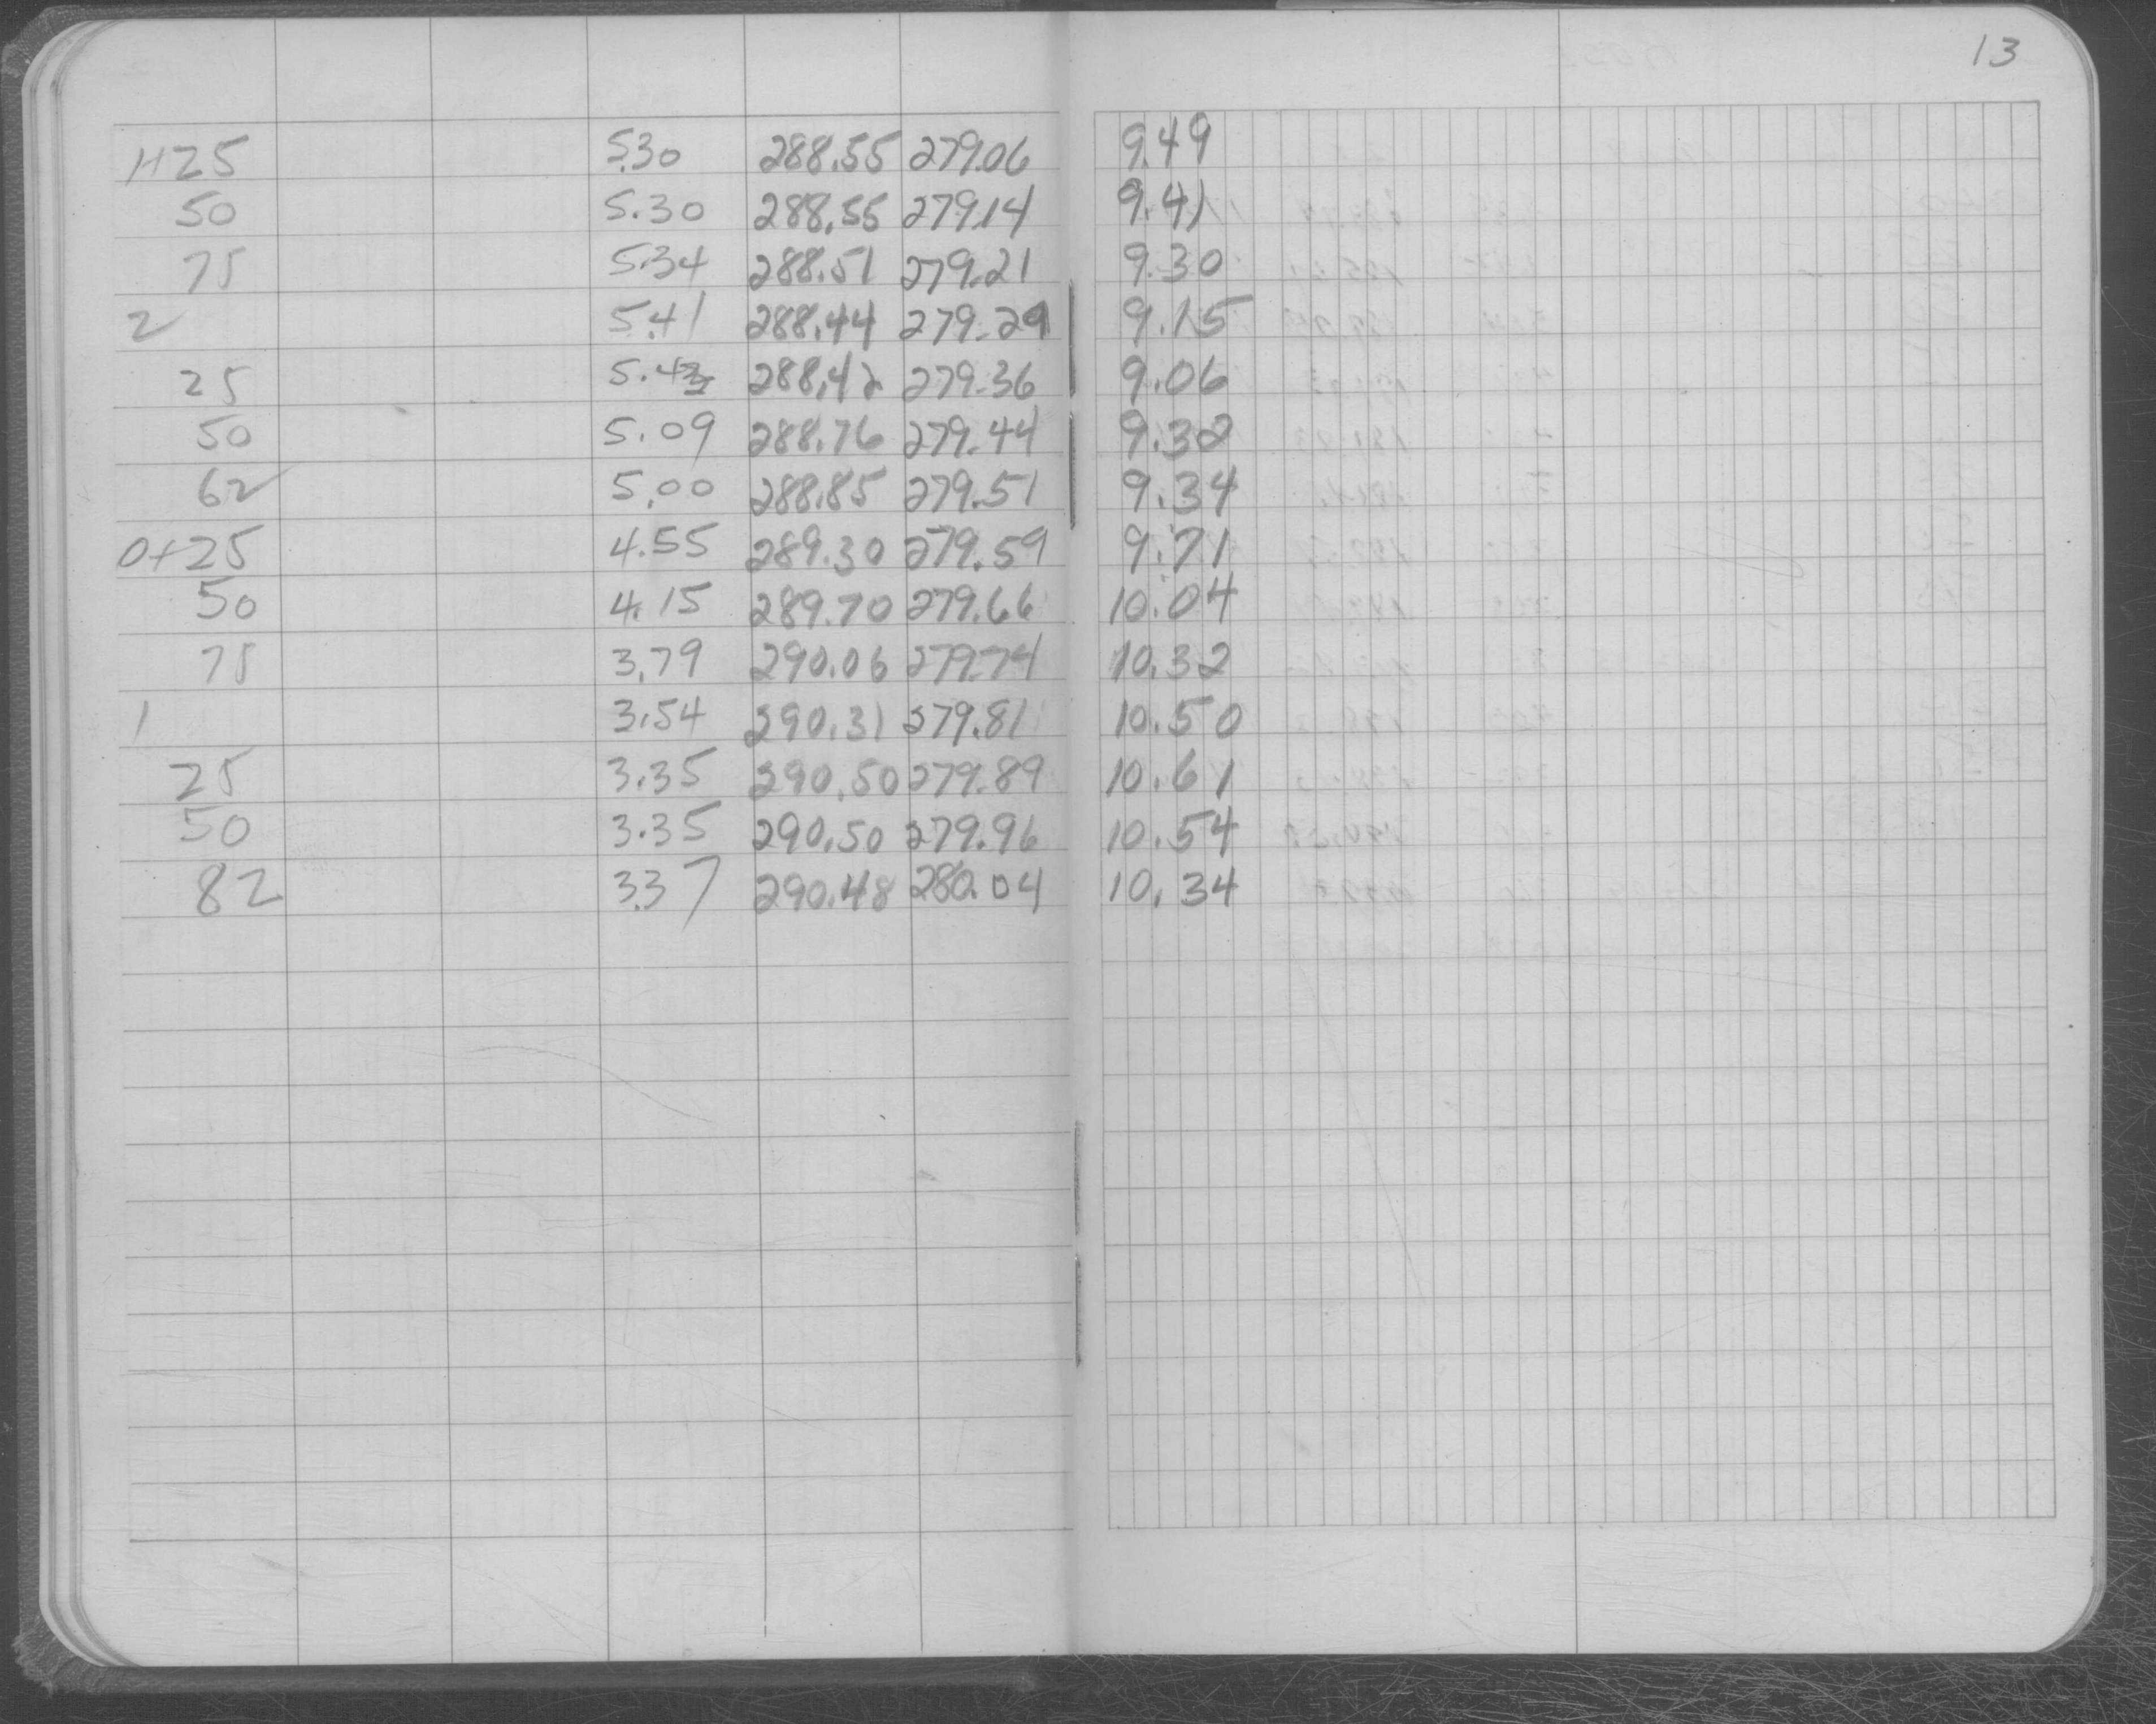 13
1+25 5.30 288.55 279.06 9.49
50 5.30 288.55 279.14 9.41
75 5.34 288.51 279.21 9.30
2 5.41 288.44 279.29 9.15
25 5.43 288.42 279.36 9.06
50 5.09 288.76 279.44 9.32
62 5.00 288.85 279.51 9.34
0+25 4.55 289.30 279.59 9.71
50 4.15 289.70 279.66 10.04
75 3.79 290.06 279.74 10.32
1 3.54 290.31 279.81 10.50
25 3.35 290.50 279.89 10.61
50 3.35 290.50 279.96 10.54
82 3.37 290.48 280.04 10.34